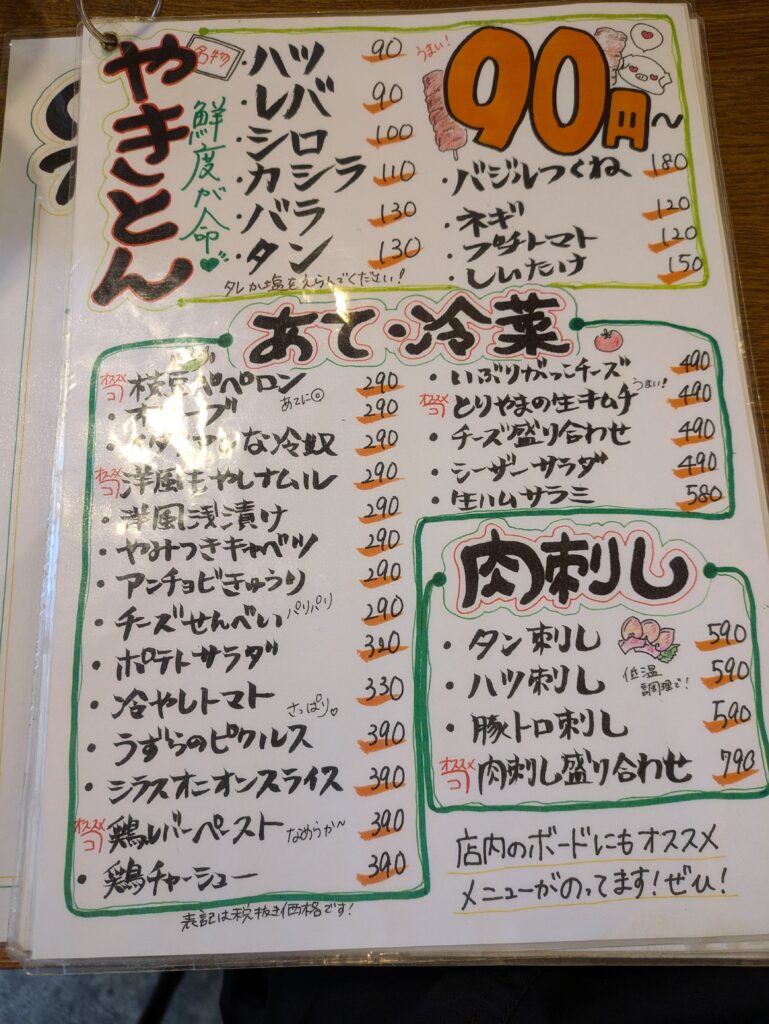 やきとん
名物
鮮度が命
・ハツ 90
・レバ 90
・シロ 100
・カシラ 110
・バラ 130
・タン 130
タレか塩をえらんでください!
うまい!
90円〜
・バジルつくね 180
・ネギ 120
・プチトマト 120
・しいたけ 150
あて・冷菜
オススメ コ 枝豆ペペロン 290
・オリーブ あてに◎ 290
な冷奴 290
オススメ コ 洋風もやしナムル 290
・洋風浅漬け 290
・やみつきキャベツ 290
・アンチョビきゅうり 290
・チーズせんべい パリパリ 290
・ポテトサラダ 320
・冷やしトマト さっぱり 330
・うずらのピクルス 390
・シラスオニオンスライス 390
オススメ コ 鶏レバーペースト なめらか〜 390
・鶏チャーシュー 390
・いぶりがっこチーズ 490
オススメ コ とりやまの生キムチ うまい! 490
・チーズ盛り合わせ 490
・シーザーサラダ 490
・生ハムサラミ 580
肉刺し
・タン刺し 590
・ハツ刺し 低温調理で! 590
・豚トロ刺し 590
オススメ コ 肉刺し盛り合わせ 790
店内のボードにもオススメ
メニューがのってます!ぜひ!
表記は税抜き価格です!